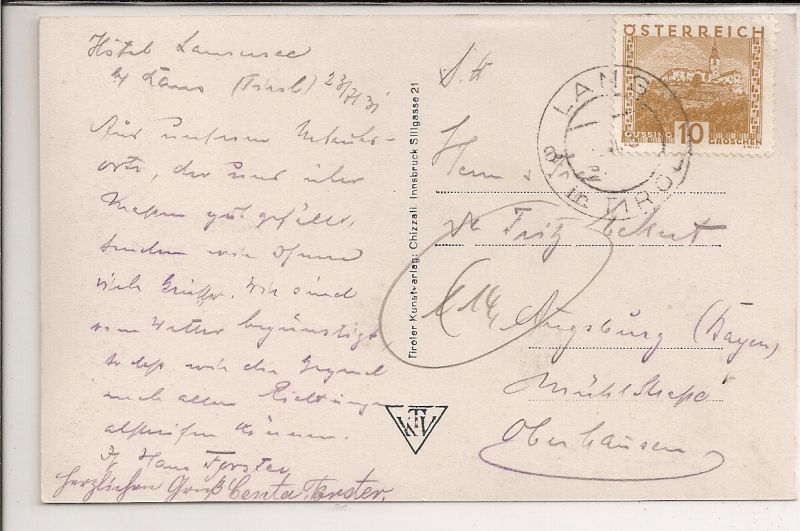 Hotel Lansersee
by Lans (Tirol) 23/7 31
Aus unserem Urlaubs-
orte, der uns über
Maßen gut gefällt,
senden wir Ihnen
viele Grüße. Wir sind
vom Wetter begünstigt
so daß wir die Gegend
nach allen Richtungen
abstreifen können.
Hans Forster
herzlichen Gruß Centa Forster.
Tiroler Kunstverlag: Chizzali, Innsbruck Sillgasse 21
TKV
ÖSTERREICH
GÜSSING 10 GROSCHEN
LANS
in TIROL
Herrn
Fritz Eckert
Augsburg (Bayern)
Mühlstraße
Oberhausen